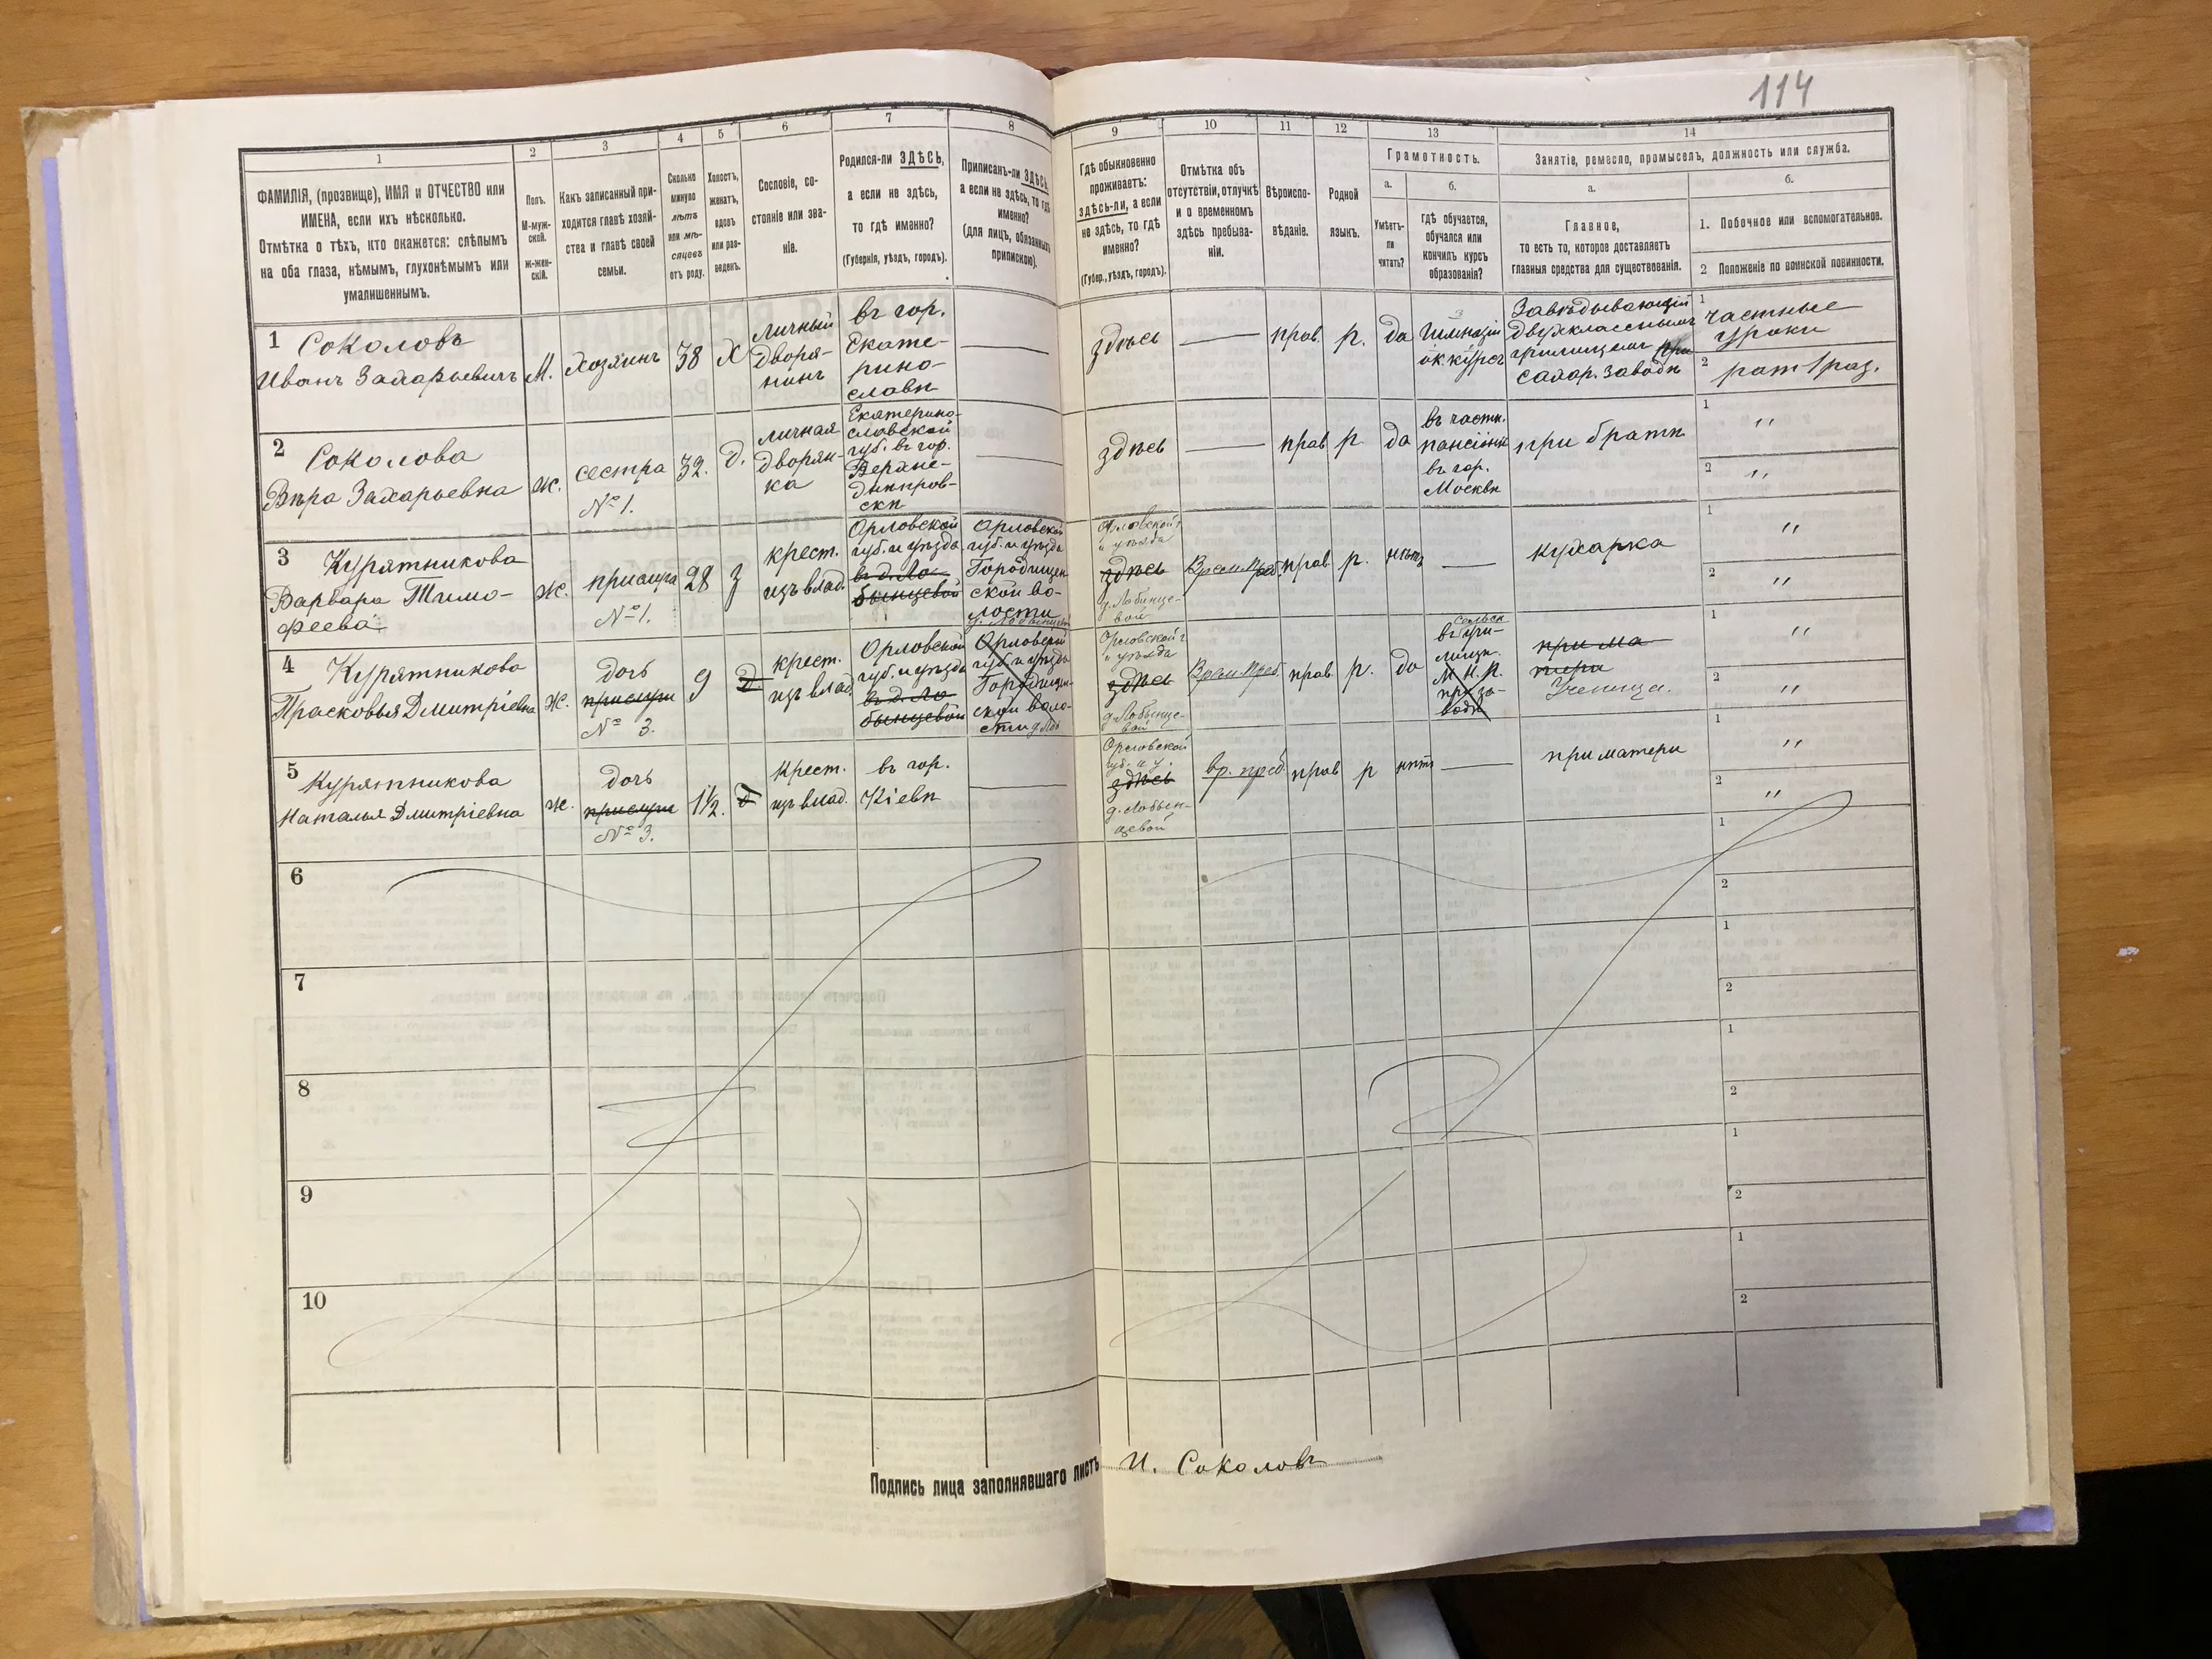 114
1
2
3
4
5
6
7
8
9
10
11
12
13
14
ФАМИЛІЯ, (прозвище), ИМЯ и ОТЧЕСТВО или
ИМЕНА, если ихъ нѣсколько.
Отмѣтка о тѣхъ, кто окажется: слѣпымъ
на оба глаза, нѣмымъ, глухонѣмымъ или
умалишеннымъ.
Полъ.
М-муж-
ской.
Ж-жен-
скій.
Какъ записанный при-
ходится главѣ хозяй-
ства и главѣ своей
семьи.
Сколько
минуло
лѣтъ
или мѣ-
сяцевъ
отъ роду.
Холостъ,
женатъ,
вдовъ
или раз-
веденъ.
Сословіе, со-
стояніе или зва-
ніе.
Родился-ли ЗДѢСЬ,
а если не здѣсь,
то гдѣ именно?
(Губернія, уѣздъ, городъ).
Приписанъ-ли ЗДѢСЬ,
а если не здѣсь, то гдѣ
именно?
(для лицъ, обязанныхъ
припискою).
Гдѣ обыкновенно
проживаетъ:
здѣсь-ли, а если
не здѣсь, то гдѣ
именно?
(Губер., уѣздъ, городъ).
Отмѣтка объ
отсутствіи, отлучкѣ
и о временномъ
здѣсь пребыва-
ніи.
Вѣроиспо-
вѣданіе.
Родной
языкъ.
Грамотность.
а.
б.
Умѣетъ-
ли
читать?
гдѣ обучается,
обучался или
кончилъ курсъ
образованія?
Занятіе, ремесло, промыселъ, должность или служба.
а.
б.
Главное,
то есть то, которое доставляетъ
главныя средства для существованія.
1. Побочное или вспомогательное.
2 Положеніе по воинской повинности.
1 Соколовъ
Иванъ Захарьевичъ
М.
хозяинъ
38
Х
личный
дворя-
нинъ
въ гор.
Екате-
рино-
славѣ
здѣсь
прав.
р.
да
Гимназіи
ок. курсъ
Завѣдывающій
двухкласснымъ
училищемъ при
сахар. заводѣ
1 частные
уроки
2 рат. 1 раз.
2 Соколова
Вѣра Захарьевна
ж.
сестра
№ 1.
32.
д.
личная
дворян-
ка
Екатерино-
славской
губ. въ гор.
Верхне-
днѣпров-
скѣ
здѣсь
прав
р.
да
въ частн.
пансіонѣ
въ гор.
Москвѣ
при братѣ
1 "
2 "
3 Курятникова
Варвара Тимо-
феева
ж.
прислуга
№ 1.
28
з
крест.
изъ влад.
Орловской
губ. и уѣзда
въ д. Ло-
бынцевой
Орловской
губ. и уѣзда
Городищен-
ской во-
лости
Орловской г
и уѣзда
здѣсь
д. Лобынце-
вой
Врем. преб.
прав.
р.
нѣтъ
кухарка
1 "
2 "
4 Курятникова
Прасковья Дмитріевна
ж.
дочь
прислуги
№ 3.
9
д
крест.
изъ влад.
Орловской
губ. и уѣзда
въ д. Ло
бынцевой
Орловской
губ. и уѣзда
Городищен-
ской воло-
сти
Орловской г
и уѣзда
здѣсь
д. Лобынце-
вой
Врем. преб.
прав.
р.
да
сельск
въ учи-
лищѣ
М. Н. П.
при за-
водѣ
при ма-
тери
Ученица.
1 "
2 "
5 Курятникова
Наталья Дмитріевна
ж.
дочь
прислуги
№ 3.
1 1/2.
д
крест.
изъ влад.
въ гор.
Кіевѣ
Орловской
губ. и у.
здѣсь
д. Лобын-
цевой
вр. преб.
прав
р
нѣтъ
при матери
1 "
2 "
6
1
2
7
1
2
8
1
2
9
1
2
10
1
2
Подпись лица заполнявшаго листъ И. Соколовъ